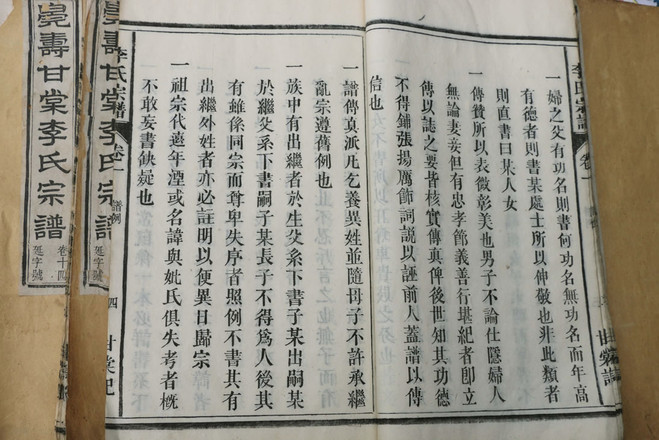 李氏宗譜 卷一
一婦之父有功名則書何功名無功名而年高
有德者則書某處士所以伸敬也非此類者
則直書曰某人女
一傳贊所以表微彰美也男子不論仕隱婦人
無論妻妾但有忠孝節義善行堪紀者卽立
傳以誌之要皆核實傳真俾後世知其功德
不得鋪張揚厲飾詞說以誣前人蓋譜以傳
信也
一譜傳真派凡乞養異姓並隨母子不許承繼
亂宗遵舊例也
一族中有出繼者於生父系下書子某出嗣某
於繼父系下書嗣子某長子不得爲人後其
有雖係同宗而尊卑失序者照例不書其有
出繼外姓者亦必註明以便異日歸宗
一祖宗代遠年湮或名諱與妣氏俱失考者槪
不敢妄書缺疑也
李氏宗譜 卷一 譜例 四 甘棠記
壽甘棠李氏宗譜
字號
壽甘棠李氏宗譜
卷十四
字號